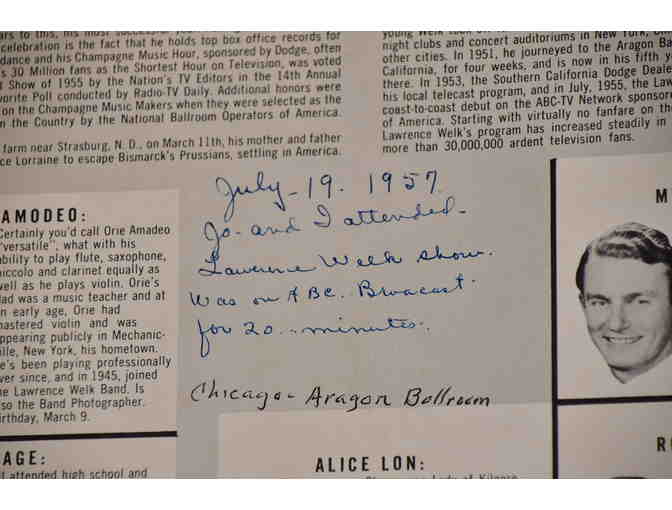 ars to this, his most successful
celebration is the fact that he holds top box office records for
dance and his Champagne Music Hour, sponsored by Dodge, often
's 30 Million fans as the Shortest Hour on Television, was voted
l Show of 1955 by the Nation's TV Editors in the 14th Annual
vorite Poll conducted by Radio-TV Daily. Additional honors were
on the Champagne Music Makers when they were selected as the
n the Country by the National Ballroom Operators of America.
farm near Strasburg, N.D., on March 11th, his mother and father
ce Lorraine to escape Bismarck's Prussians, settling in America.
young Welk took
night clubs and concert auditoriums in New York,
other cities. In 1951, he journeyed to the Aragon Ba
California, for four weeks, and is now in his fifth y
there. In 1953, the Southern California Dodge Deale
his local telecast program, and in July, 1955, the Law
coast-to-coast debut on the ABC-TV Network sponsor
of America. Starting with virtually no fanfare on th
Lawrence Welk's program has increased steadily in
more than 30,000,000 ardent television fans.
AMODEO:
Certainly you'd call Orie Amadeo
"versatile", what with his
ability to play flute, saxophone,
piccolo and clarinet equally as
well as he plays violin. Orie's
dad was a music teacher and at
an early age, Orie had
mastered violin and was
appearing publicly in Mechanic-
ille, New York, his hometown.
e's been playing professionally
ver since, and in 1945, joined
he Lawrence Welk Band. Is
so the Band Photographer.
irthday, March 9.
AGE:
attended high school and
July-19. 1957.
Jo- and I attended-
Lawrence Welk show.
Was on ABC. Broacast.
for 20.. minutes..
Chicago- Aragon Bollroom
ALICE LON:
Lady of Kilgore
M
R